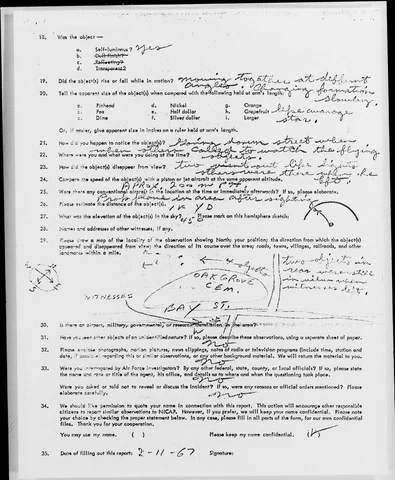 18. Was the object —
a. Self-luminous? Yes
b. Dull finish?
c. Reflecting?
d. Transparent?
19. Did the object(s) rise or fall while in motion? moving together at different
angles. Changing formation
slowly.
20. Tell the apparent size of the object(s) when compared with the following held at arm's length:
a. Pinhead d. Nickel g. Orange
b. Pea e. Half dollar h. Grapefruit like average
c. Dime f. Silver dollar i. Larger star.
Or, if easier, give apparent size in inches on a ruler held at arm's length.
21. How did you happen to notice the object(s)? Going down street when
when sister called to watch the flying
22. Where were you and what were you doing at the time? objects.
23. How did the object(s) disappear from view? two went out like lights
others were there when he
left.
24. Compare the speed of the object(s) with a piston or jet aircraft at the same apparent altitude.
Aprox 200 m P H
25. Were there any conventional aircraft in the location at the time or immediately afterwards? If so, please elaborate.
Prop plane in area after sighting
26. Please estimate the distance of the object(s). 1K YD
27. What was the elevation of the object(s) in the sky? 45° Please mark on this hemisphere sketch:
28. Names and addresses of other witnesses, if any.
29. Please draw a map of the locality of the observation showing North; your position; the direction from which the object(s)
appeared and disappeared from view; the direction of its course over the area; roads, towns, villages, railroads, and other
landmarks within a mile.
4 objects
two objects in
rear were still
in view when
witnesses left.
OAKGROVE
CEM.
WITNESSES
BAY ST.
30. Is there an airport, military, governmental, or research installation in the area?
no
31. Have you seen other objects of an unidentified nature? If so, please describe these observations, using a separate sheet of paper.
no
32. Please enclose photographs, motion pictures, news clippings, notes of radio or television programs (include time, station and
date, if possible) regarding this or similar observations, or any other background material. We will return the material to you.
no
33. Were you interrogated by Air Force investigators? By any other federal, state, county, or local officials? If so, please state
the name and rank or title of the agent, his office, and details as to where and when the questioning took place.
no
Were you asked or told not to reveal or discuss the incident? If so, were any reasons or official orders mentioned? Please
elaborate carefully. no
34. We should like permission to quote your name in connection with this report. This action will encourage other responsible
citizens to report similar observations to NICAP. However, if you prefer, we will keep your name confidential. Please note
your choice by checking the proper statement below. In any case, please fill in all parts of the form, for our own confidential
files. Thank you for your cooperation.
You may use my name. ( ) Please keep my name confidential. (X)
35. Date of filling out this report: 2-11-67 Signature: